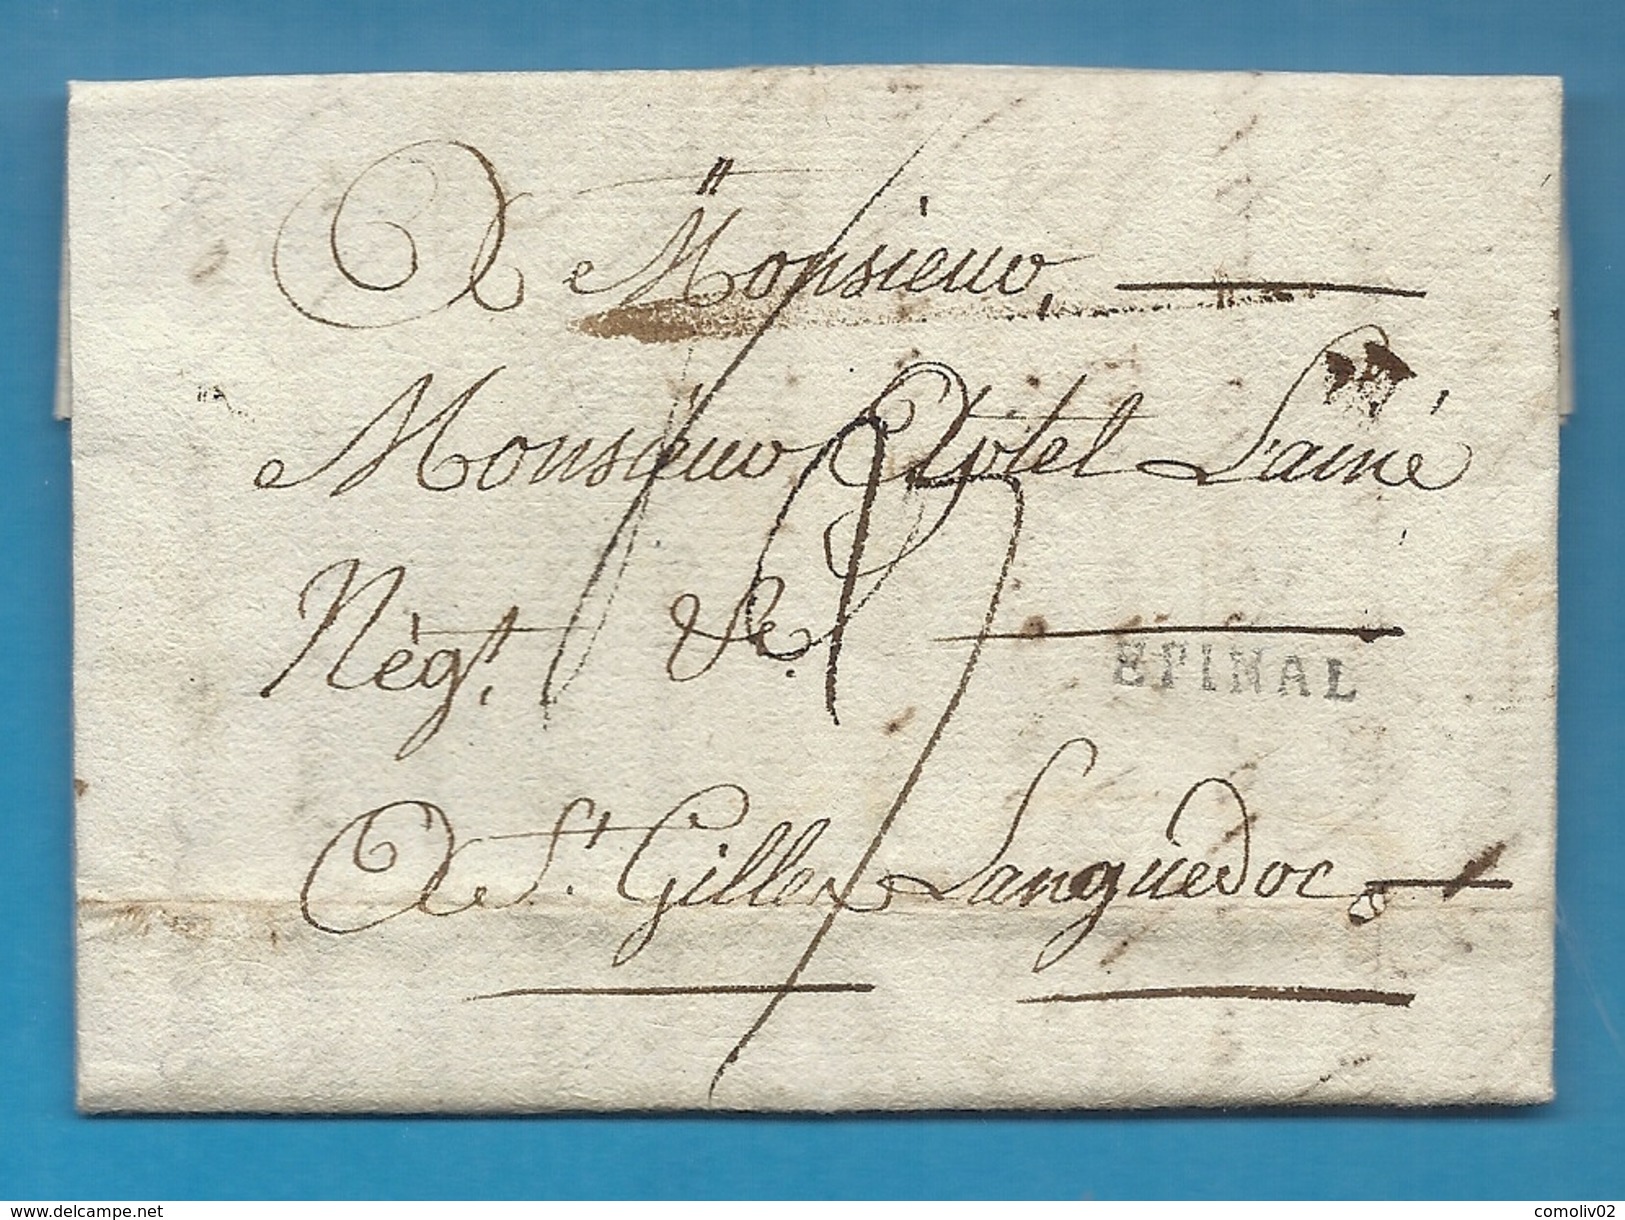 A Monsieur,
Monsieur Lainé
Négt. &c.
EPINAL
A St. Gilles Languedoc
www.delcampe.net
comoliv02